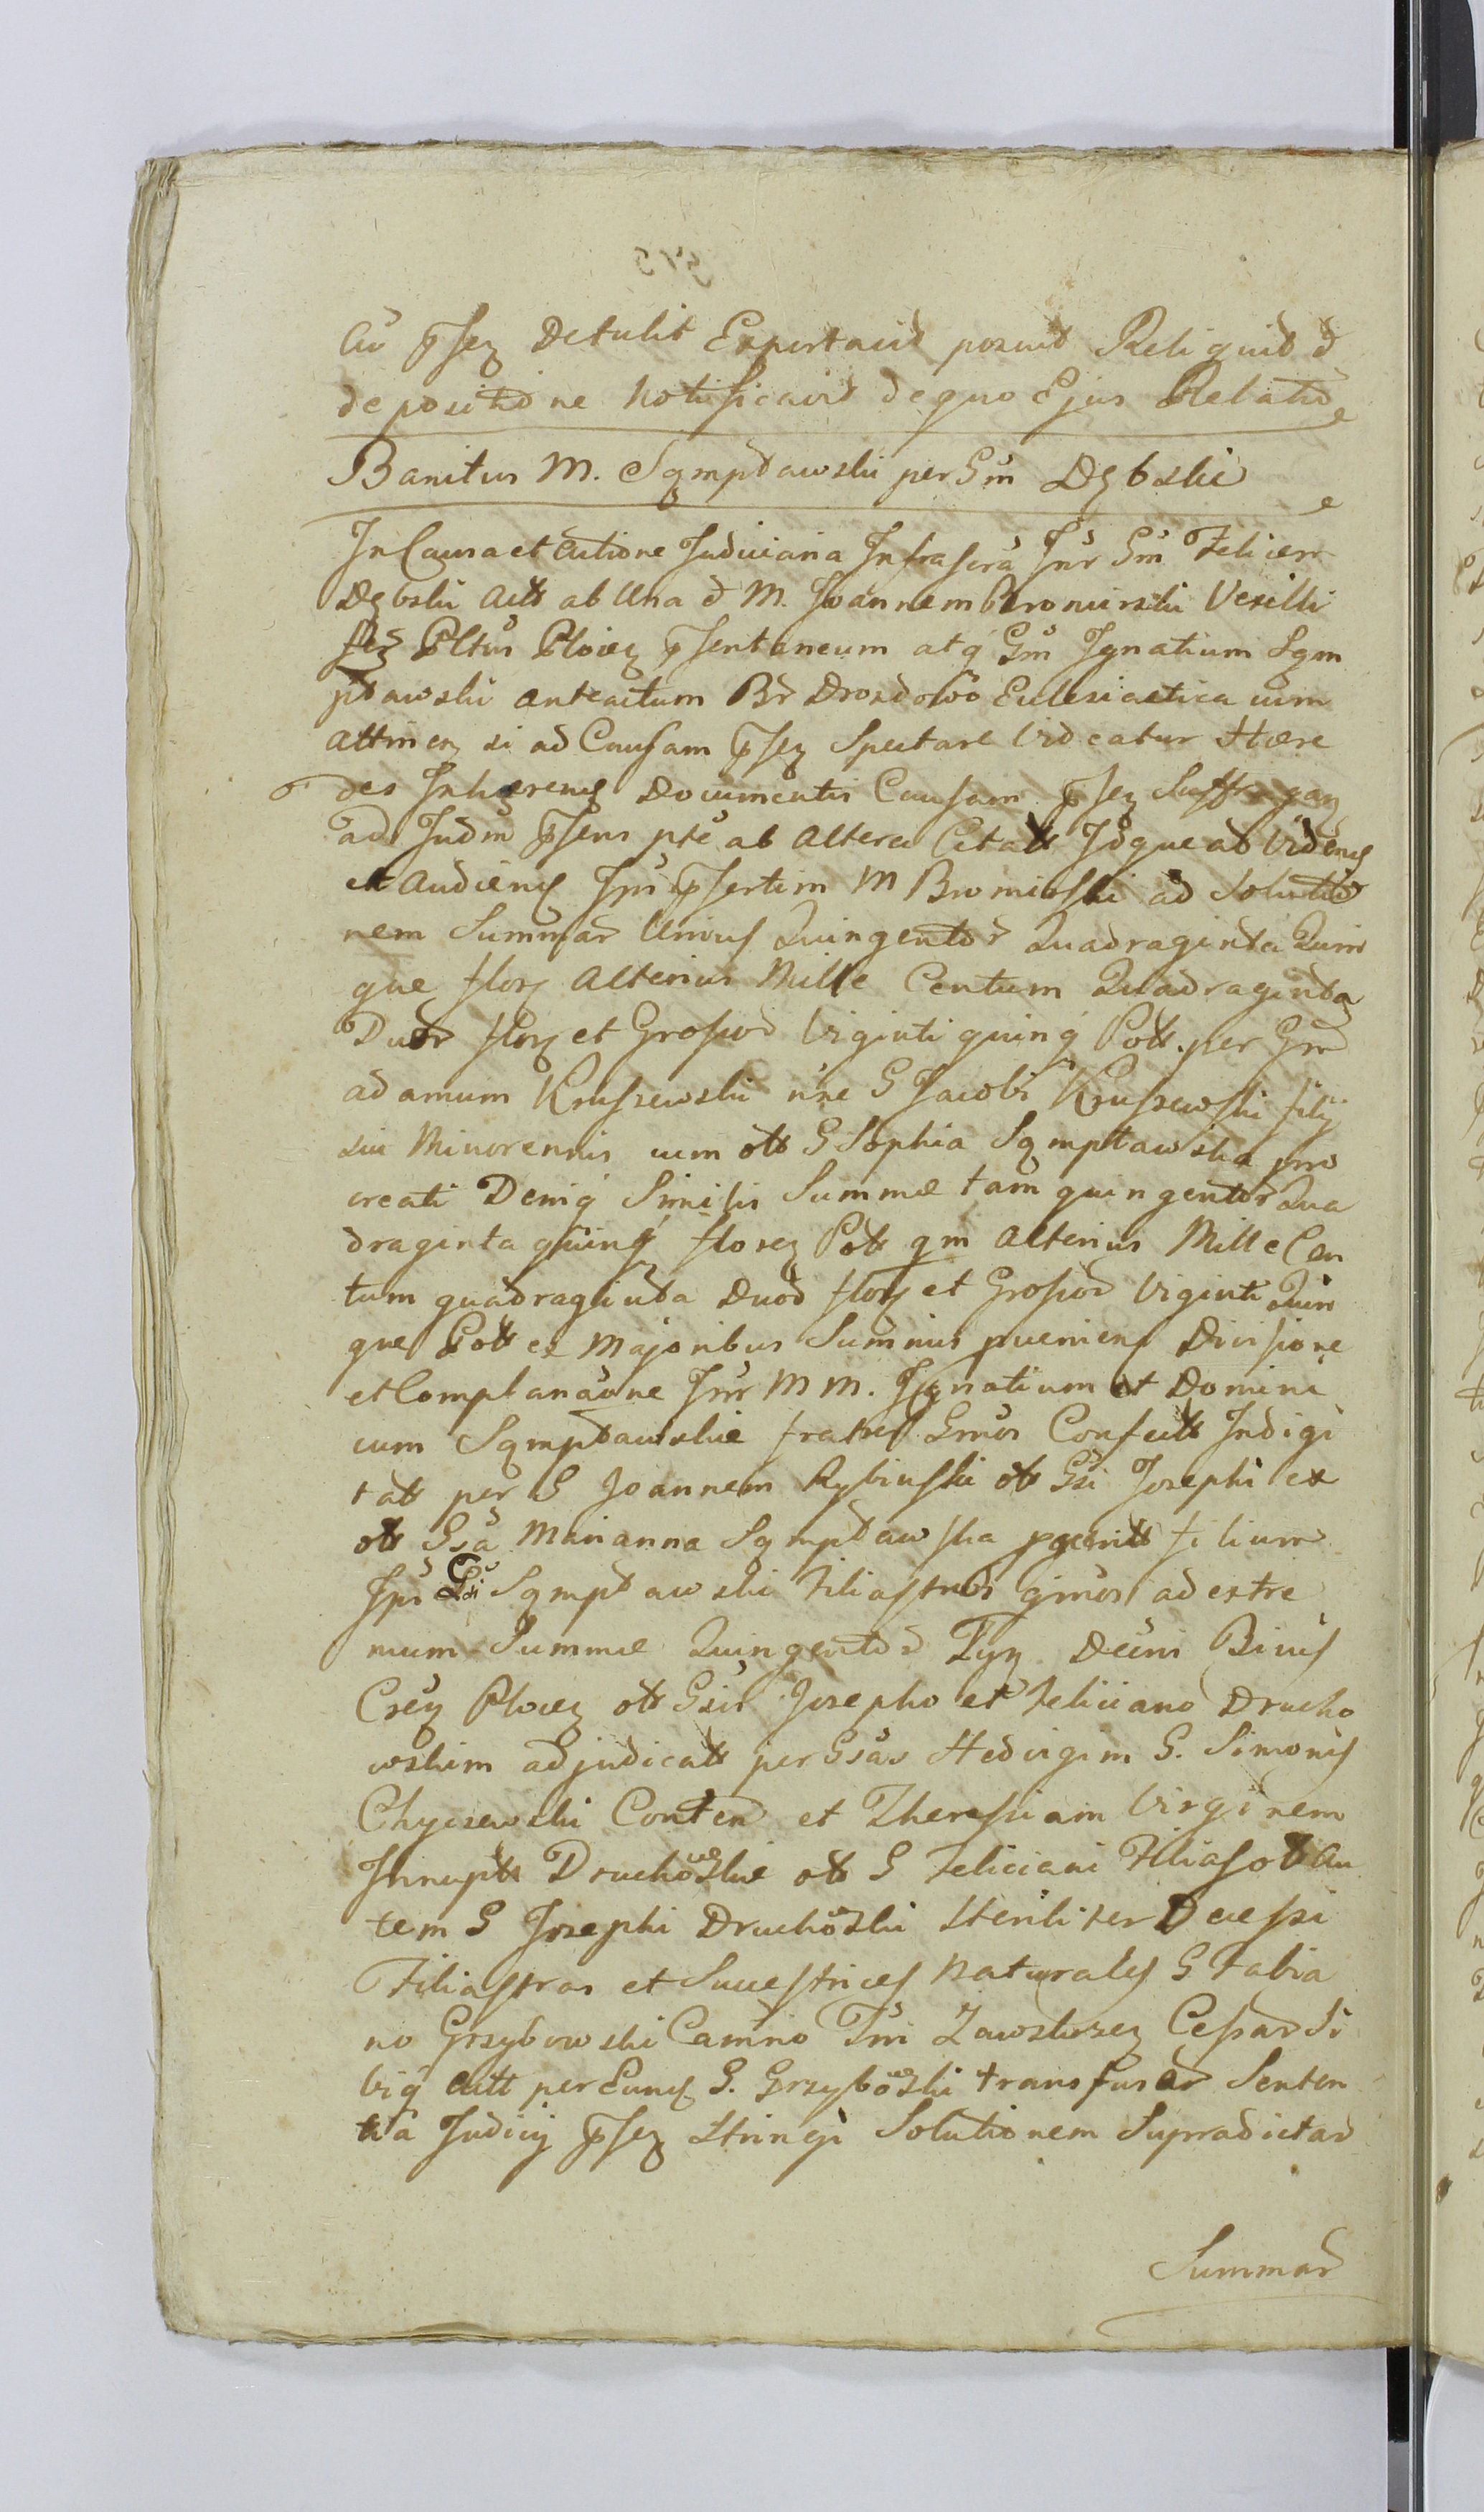 Aū pńsey Detulit Exportavit posuit Reliquit đ
depositione Notificavit dequo Ejus Relatio
Banitus M. Sąmpławski per Gm̃ Dębski
In Causa et Actione Judiciaria Infrascrã Inr̃ Gm̃ Felicem
Dębski Actt ab Una đ M. Joannem Bromirski Vexilli
Pltus Płocen pńsentaneum atq̃ Gm̃ Ignatium Sąm
pławski anteactum Br̃ Drozdowo Ecclesiastica cum
attinen si ad Causam pńsen Spectare Videatur Hære
des Inhærend Documentis Causam pńsen Suffragan
ad Judm̃ pńsens pte ab altera Citatt Idque ad Videnđ
et Audienđ Ipś pńsertim M Bromirski ad Solutio
nem Summar̃ Unius Quingentor̃ Quadraginta Quin
que flor̃ Alterius Mille Centum Quadraginta
Duor̃ flor̃ et Grossor̃ Viginti quinq̃ Poll. per Gm̃
adamum Kruszewski nñe G Jacobi Kruszewski filij
sui Minorennis cum oll G Sophia Sąmpławska pro
creati Deniq̃ Similis Summæ tam quingentor̃ Qua
draginta quinq̃ floren Poll qm̃ alterius Mille Cen
tum quadraginta Duor̃ flor̃ et Grossor̃ Viginti Quin
que Poll ex Majoribus Summis pvenienđ Divisione
et Complanac̃ne Inr̃ M M. Ignatium et Domini
cum Sąmpławskie fratres Gm̃os Confectt Indigi
tatt per G Joannem Rybinski oll Gsi Josephi ex
oll Gsa Marianna Sąmpławska pgenitt filium
Ipś Gsi Sąmpławski filiastrũ gm̃os ad extre
mum Summæ Quingentor̃ Tyn Decñi Bivis
Crẽn Płocen oll Gsis Josepho et Feliciano Drucho
wskim adjudicatt per Gsas Hedvigim G. Simonis
Chyczewski Conten et Theressiam Virginem
Innuptt Druchowskie oll G Feliciani Filias oll au
tem G Josephi Druchowski Steriliter Decessi
Filiastras et Successtrices Naturales G Fabia
no Grzybowski Camr̃io Tm̃i Zawskrzen Cessar̃ Si
biq̃ Actt per Eunđ G. Grzybowski transfusar̃ Senten
tia Judicij pńsen Stringi Solutionem Supradictar̃
Summar̃